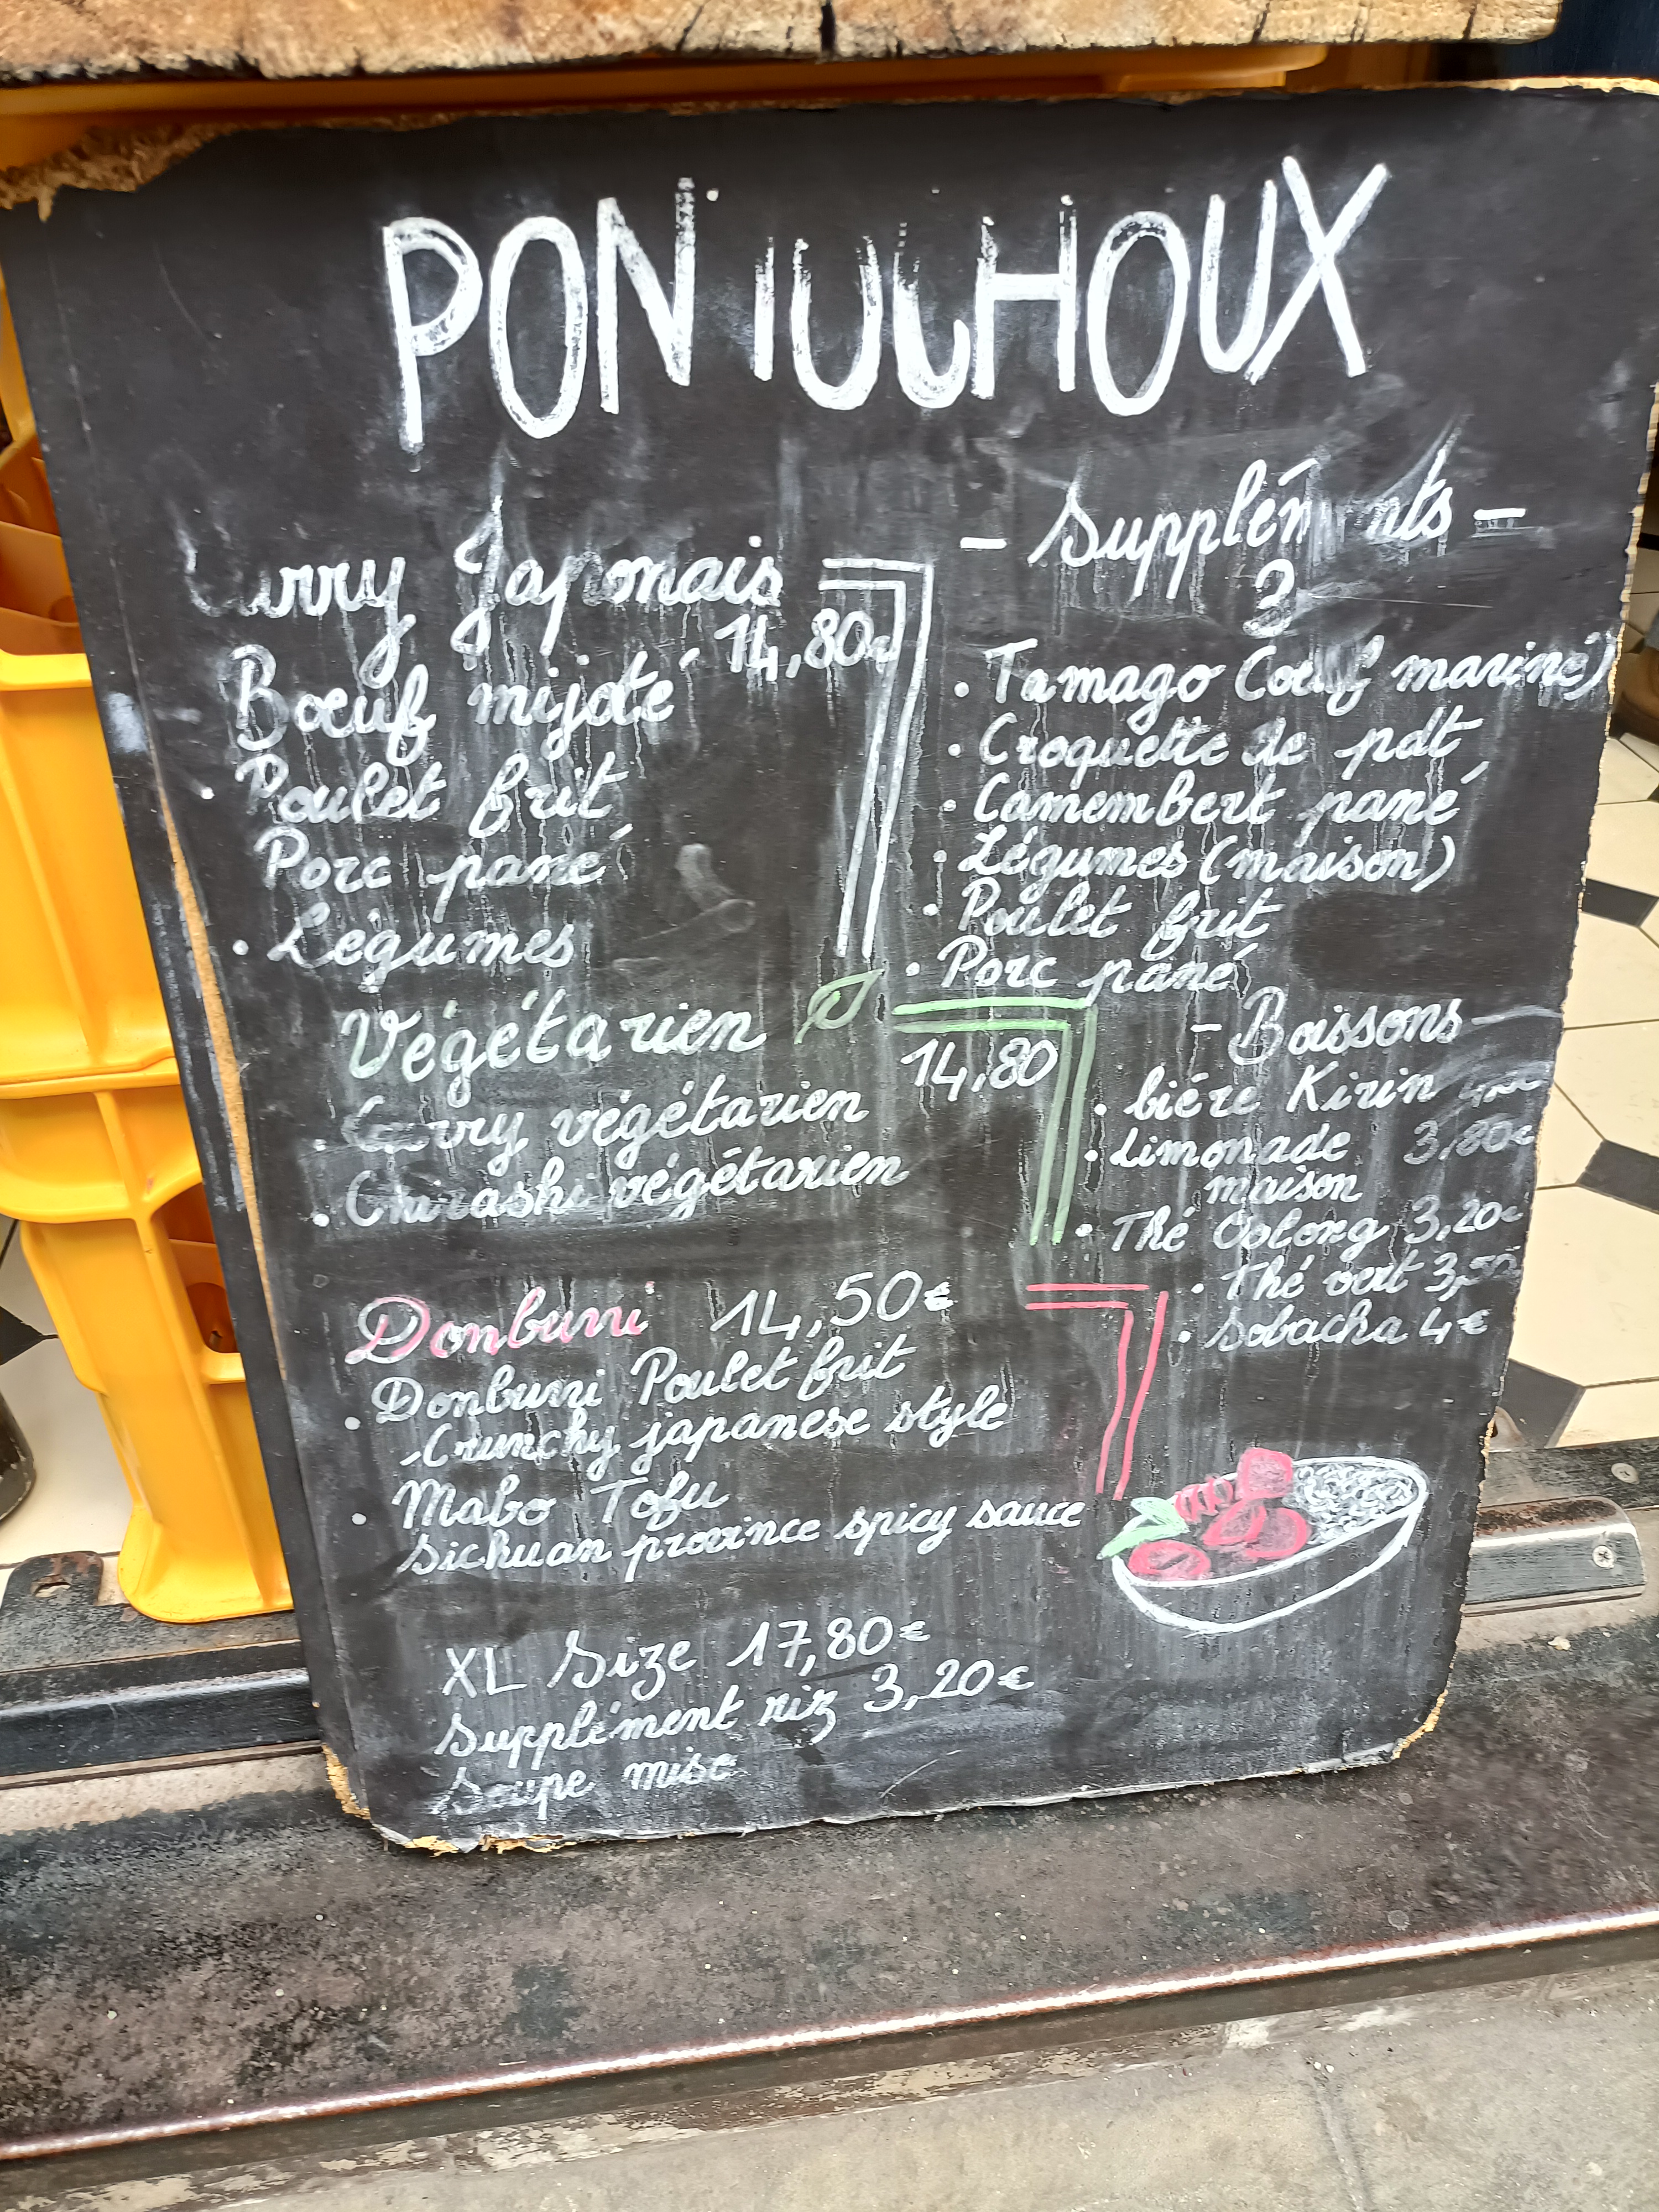 PONTOCHOUX
Curry Japonais
14,80€
Bœuf mijoté
Poulet frit
Porc pané
• Légumes
Végétarien
14,80
• Curry végétarien
• Chirashi végétarien
Donburi 14,50€
• Donburi Poulet frit
-Crunchy japanese style
• Mabo Tofu
Sichuan province spicy sauce
XL Size 17,80€
Supplément riz 3,20€
Soupe miso
- Suppléments -
3
• Tamago (œuf mariné)
• Croquette de pdt
• Camembert pané
• Légumes (maison)
• Poulet frit
• Porc pané
- Boissons -
• biére Kirin
• Limonade 3,80€
maison
• Thé Oolong 3,20€
• Thé vert 3,50
• Sobacha 4€